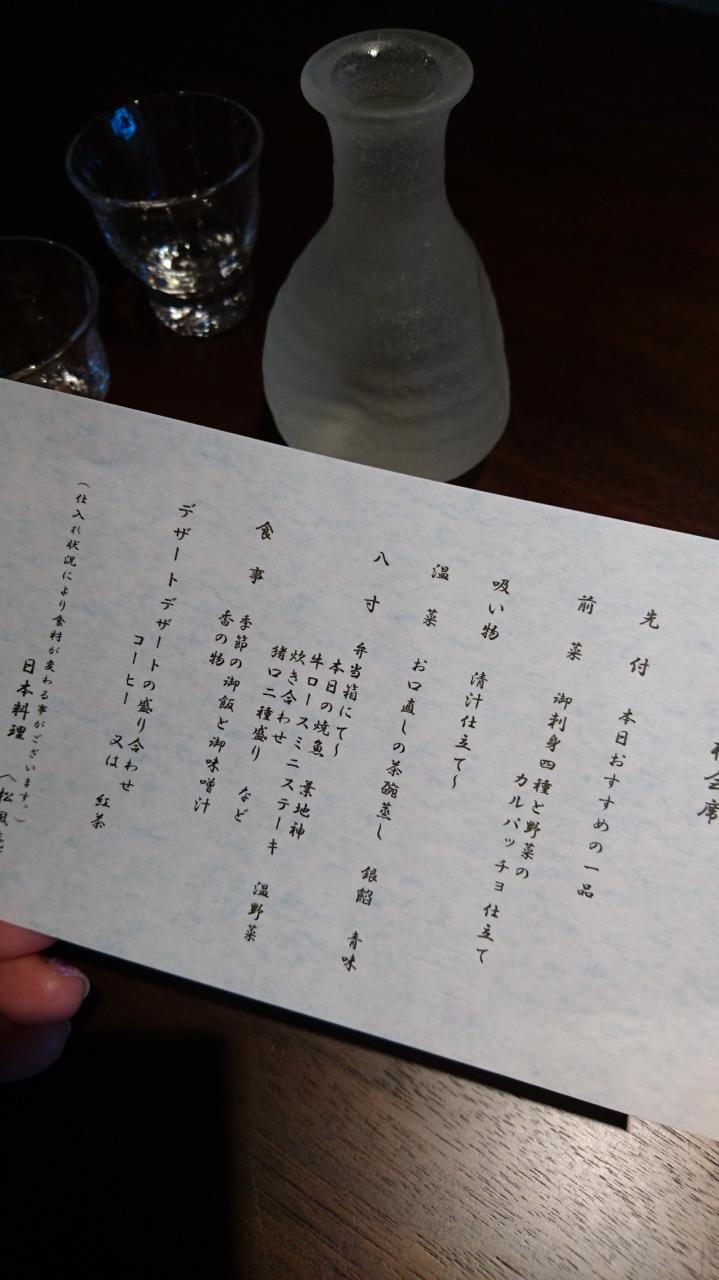 会席
先付 本日おすすめの一品
前菜 御刺身四種と野菜の
カルパッチョ仕立て
吸い物 清汁仕立て〜
温菜 お口直しの茶碗蒸し 銀餡 青味
八寸 弁当箱にて〜
本日の焼魚 葉地神
牛ロースミニステーキ 温野菜
炊き合わせ
猪口二種盛り など
食事 季節の御飯と御味噌汁
香の物
デザート デザートの盛り合わせ
コーヒー 又は 紅茶
(仕入れ状況により食材が変わる事がございます。)
日本料理 松風